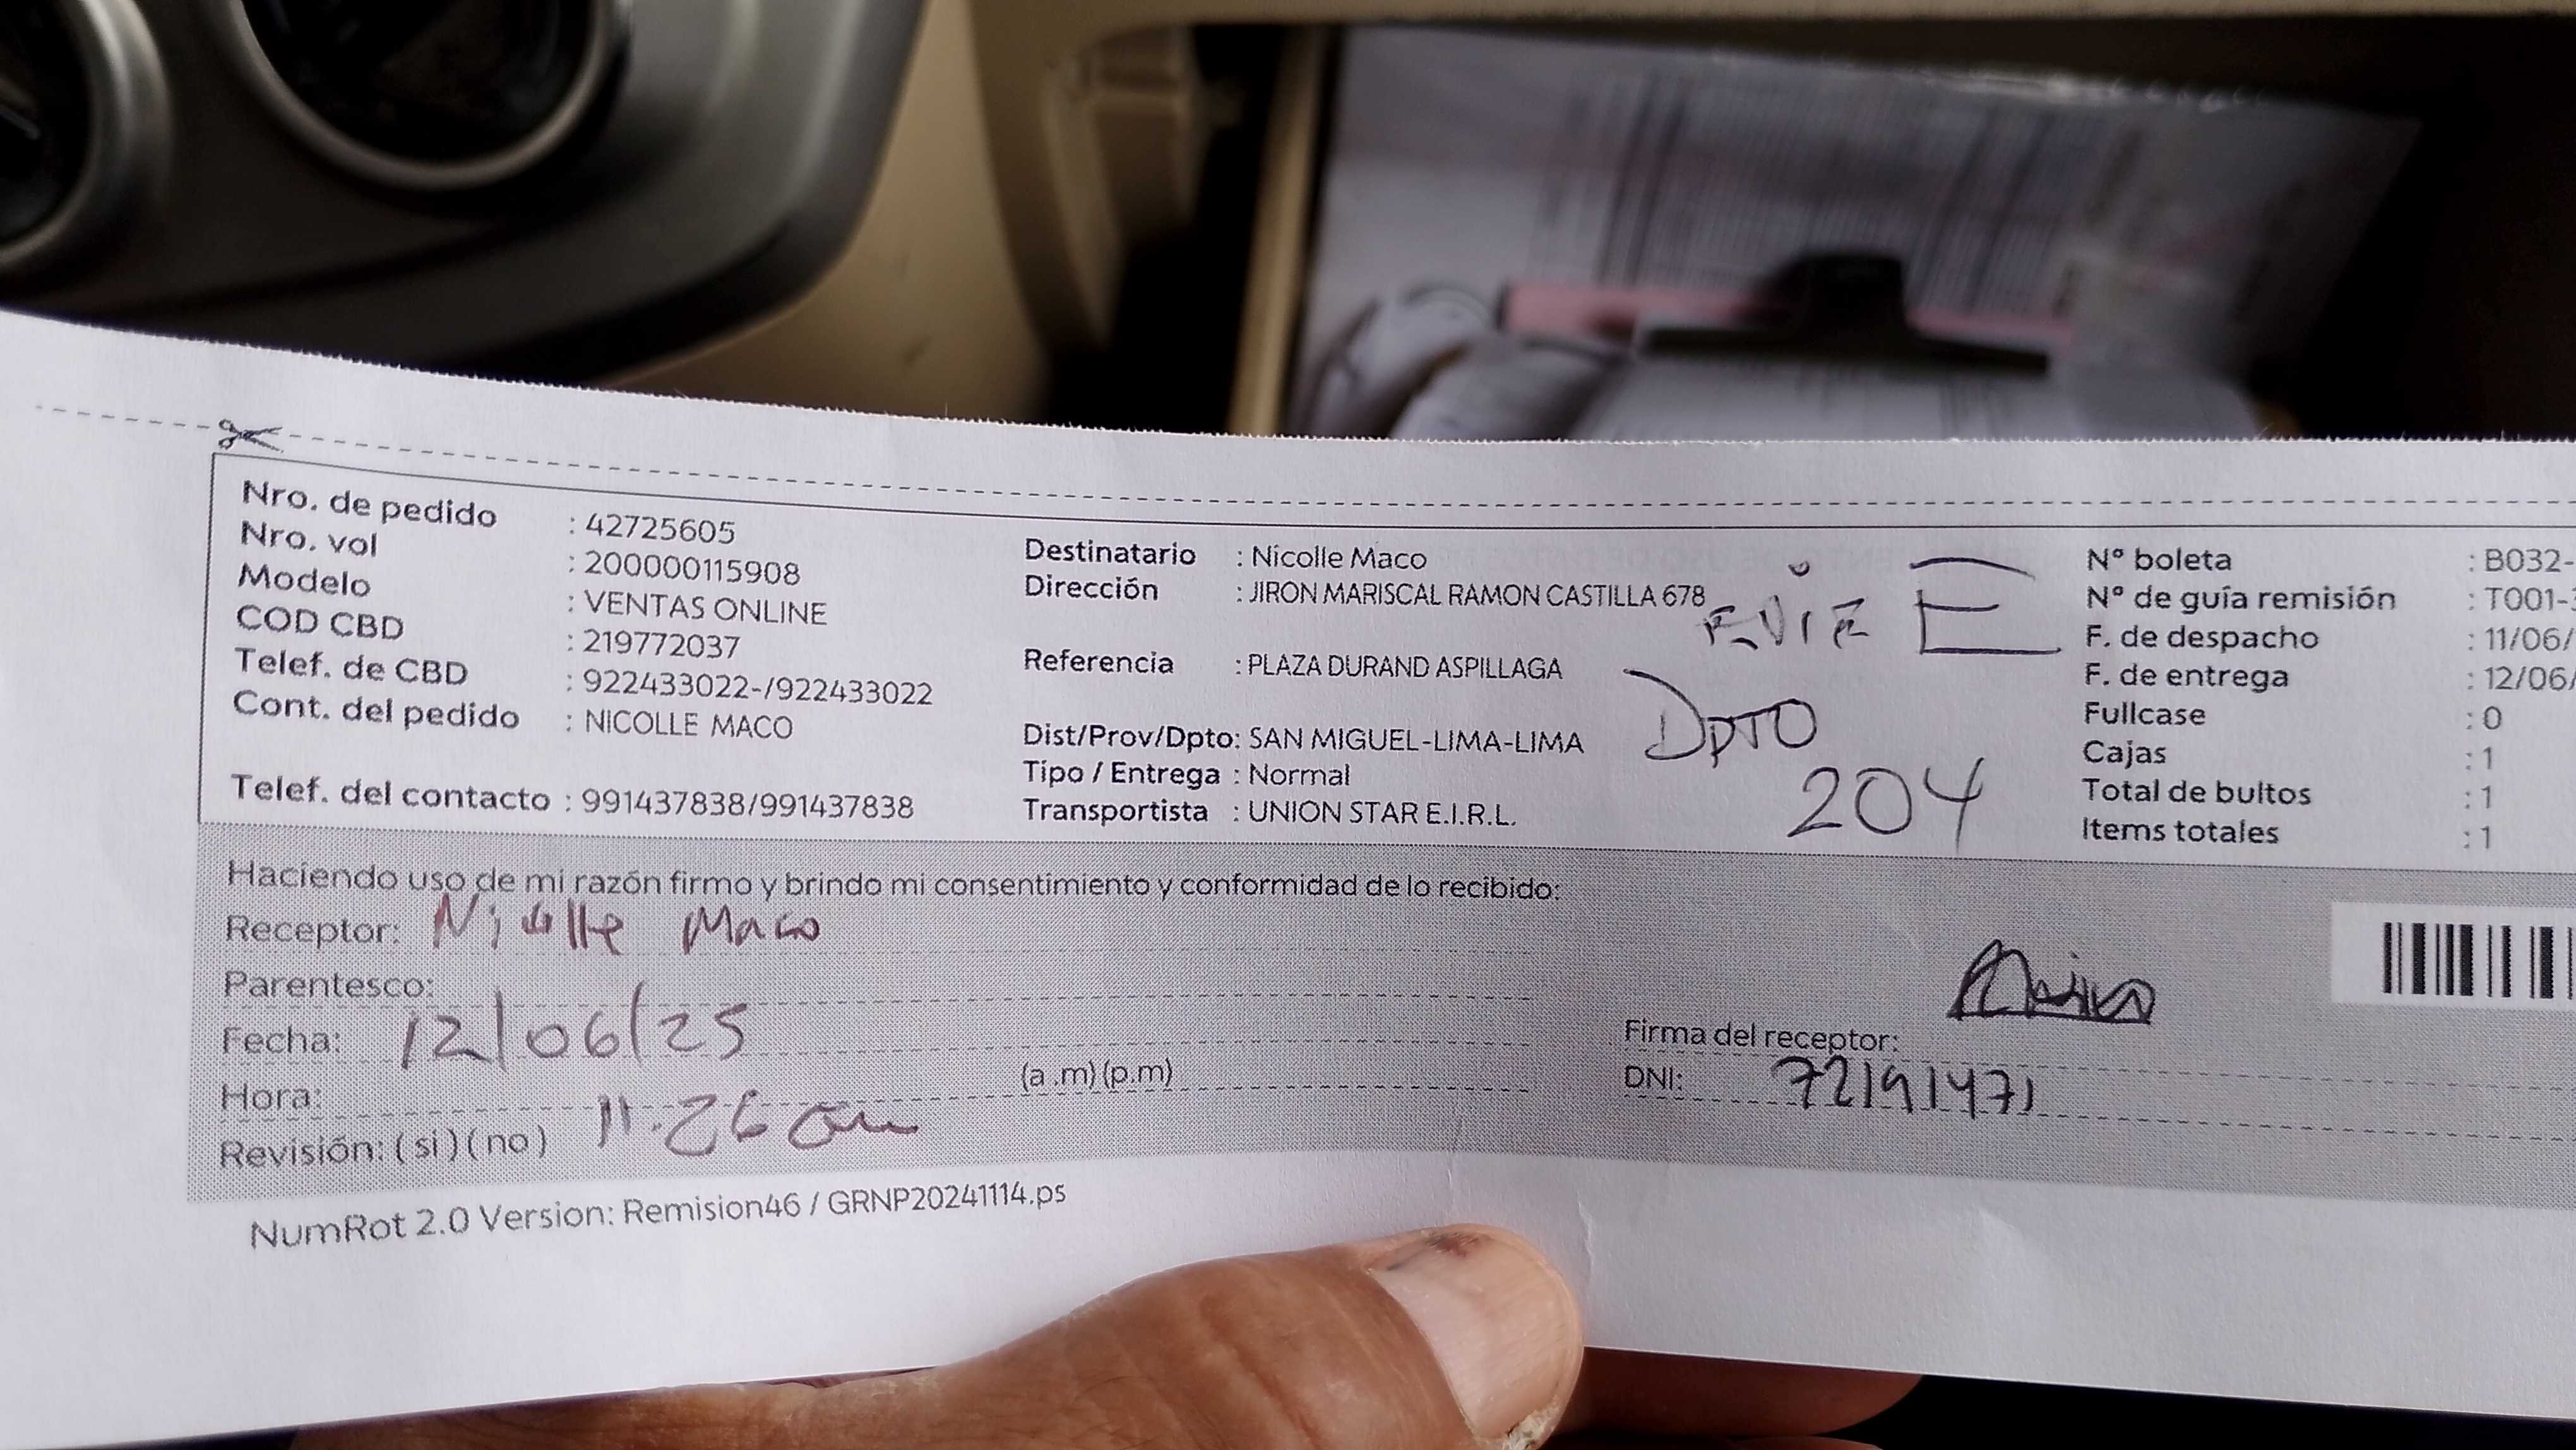 Nro. de pedido : 42725605
Nro. vol : 200000115908
Modelo : VENTAS ONLINE
COD CBD : 219772037
Telef. de CBD : 922433022-/922433022
Cont. del pedido : NICOLLE MACO
Telef. del contacto : 991437838/991437838
Destinatario : Nicolle Maco
Dirección : JIRON MARISCAL RAMON CASTILLA 678
Referencia : PLAZA DURAND ASPILLAGA
Dist/Prov/Dpto: SAN MIGUEL-LIMA-LIMA
Tipo / Entrega : Normal
Transportista : UNION STAR E.I.R.L.
E
DPTO
204
N° boleta : B032-
N° de guía remisión : T001-
F. de despacho : 11/06/
F. de entrega : 12/06/
Fullcase : 0
Cajas : 1
Total de bultos : 1
Items totales : 1
Haciendo uso de mi razón firmo y brindo mi consentimiento y conformidad de lo recibido:
Receptor: Nicolle Maco
Parentesco:
Fecha: 12/06/25
Hora: (a .m) (p.m)
11:26 am
Revisión: ( si ) ( no )
Firma del receptor:
DNI: 72191471
NumRot 2.0 Version: Remision46 / GRNP20241114.ps